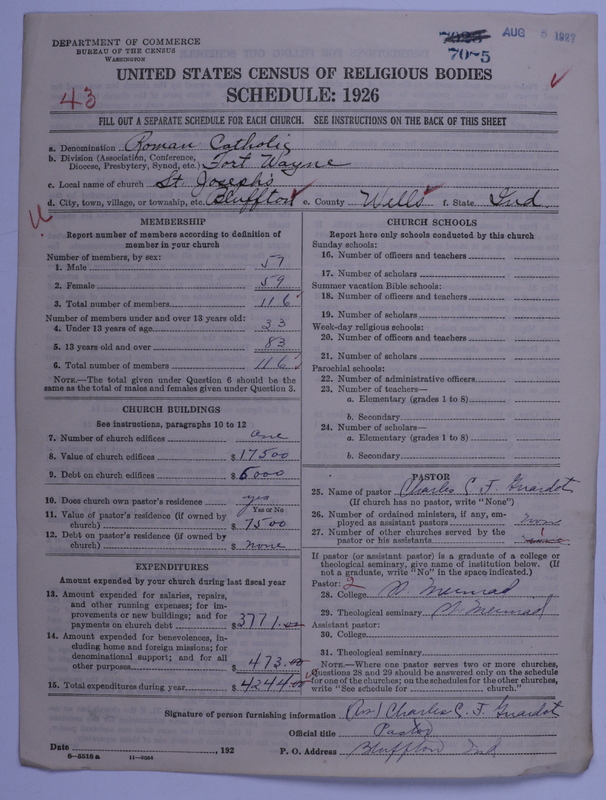 7025 AUG 5 1927
70-5
DEPARTMENT OF COMMERCE
BUREAU OF THE CENSUS
WASHINGTON
UNITED STATES CENSUS OF RELIGIOUS BODIES
43
SCHEDULE: 1926
FILL OUT A SEPARATE SCHEDULE FOR EACH CHURCH. SEE INSTRUCTIONS ON THE BACK OF THIS SHEET
a. Denomination Roman Catholic
b. Division (Association, Conference,
Diocese, Presbytery, Synod, etc.) Fort Wayne
c. Local name of church St. Joseph's
d. City, town, village, or township, etc. Bluffton e. County Wells f. State Ind
MEMBERSHIP
Report number of members according to definition of
member in your church
Number of members, by sex:
1. Male 57
2. Female 59
3. Total number of members 116
Number of members under and over 13 years old:
4. Under 13 years of age 33
5. 13 years old and over 83
6. Total number of members 116
NOTE.—The total given under Question 6 should be
same as the total of males and females given under Question 3.
CHURCH BUILDINGS
See instructions, paragraphs 10 to 12
7. Number of church edifices one
8. Value of church edifices $ 17500
9. Debt on church edifices $ 5000
10. Does church own pastor's residence yes
Yes or No
11. Value of pastor's residence (if owned by
church) $ 7500
12. Debt on pastor's residence (if owned by
church) $ none
EXPENDITURES
Amount expended by your church during last fiscal year
13. Amount expended for salaries, repairs,
and other running expenses; for im-
provements or new buildings; and for
payments on church debt $ 3771.00
14. Amount expended for benevolences, in-
cluding home and foreign missions; for
denominational support; and for all
other purposes $ 473.00
15. Total expenditures during year $ 4244.00
CHURCH SCHOOLS
Report here only schools conducted by this church
Sunday schools:
16. Number of officers and teachers
17. Number of scholars
Summer vacation Bible schools:
18. Number of officers and teachers
19. Number of scholars
Week-day religious schools:
20. Number of officers and teachers
21. Number of scholars
Parochial schools:
22. Number of administrative officers
23. Number of teachers—
a. Elementary (grades 1 to 8)
b. Secondary
24. Number of scholars—
a. Elementary (grades 1 to 8)
b. Secondary
PASTOR
25. Name of pastor Charles C. F. Guardot
(If church has no pastor, write "None")
26. Number of ordained ministers, if any, em-
ployed as assistant pastors none
27. Number of other churches served by the
pastor or his assistants
If pastor (or assistant pastor) is a graduate of a college or
theological seminary, give name of institution below. (If
not a graduate, write "No" in the space indicated.)
Pastor: 2
28. College St. Meinrad
29. Theological seminary St. Meinrad
Assistant pastor:
30. College
31. Theological seminary
NOTE.—Where one pastor serves two or more churches,
Questions 28 and 29 should be answered only on the schedule
for one of the churches; on the schedules for the other churches,
write "See schedule for church."
Signature of person furnishing information (Rev) Charles C. F. Guardot
Official title Pastor
Date , 192 P. O. Address Bluffton Ind